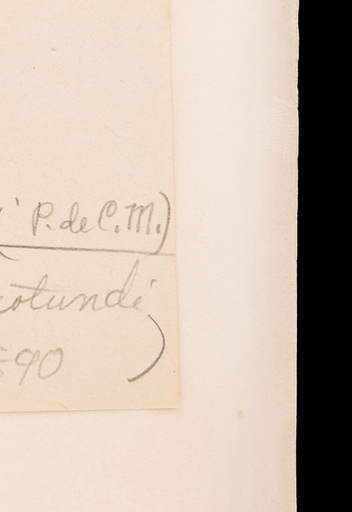 P. de C. M.)
rotundi
890
)